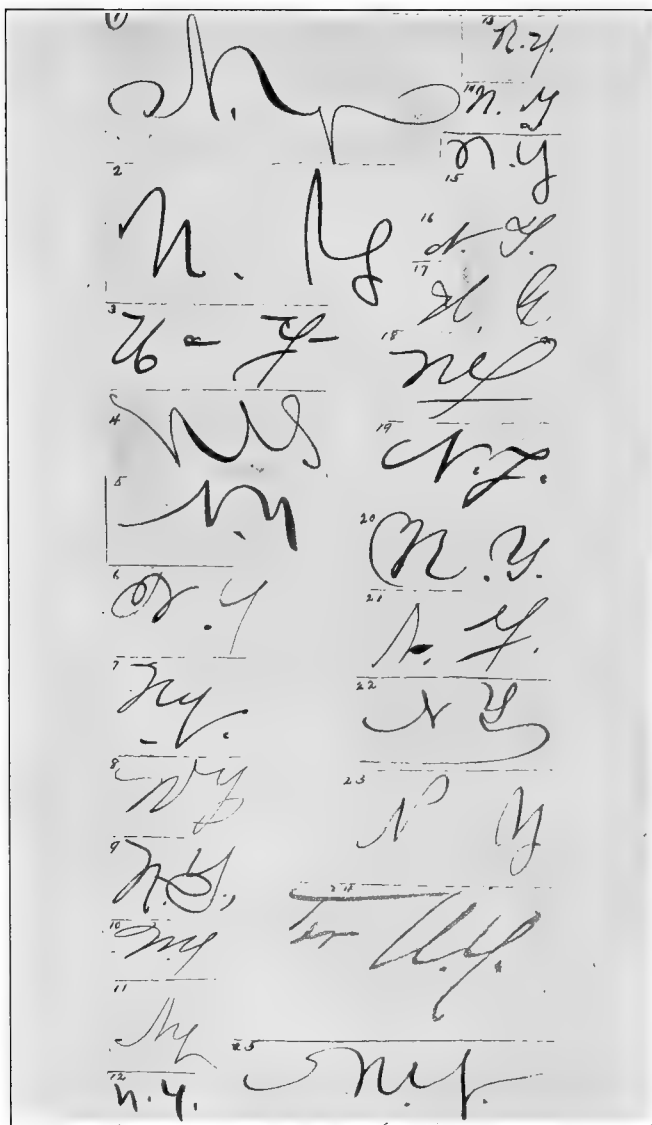 1
N. y
2
N. Y
3
N - Y -
4
NY
5
N.Y
6
N. Y
7
Ny.
8
N.Y
9
N.Y.,
10
N.Y
11
Ny
12
N. Y.
13
N. Y.
14
N. Y
15
N. Y
16
N. Y.
17
N. Y.
18
NY
19
N. Y.
20
N. Y.
21
N. Y.
22
N Y
23
N Y
24
N.Y.
25
N.Y.